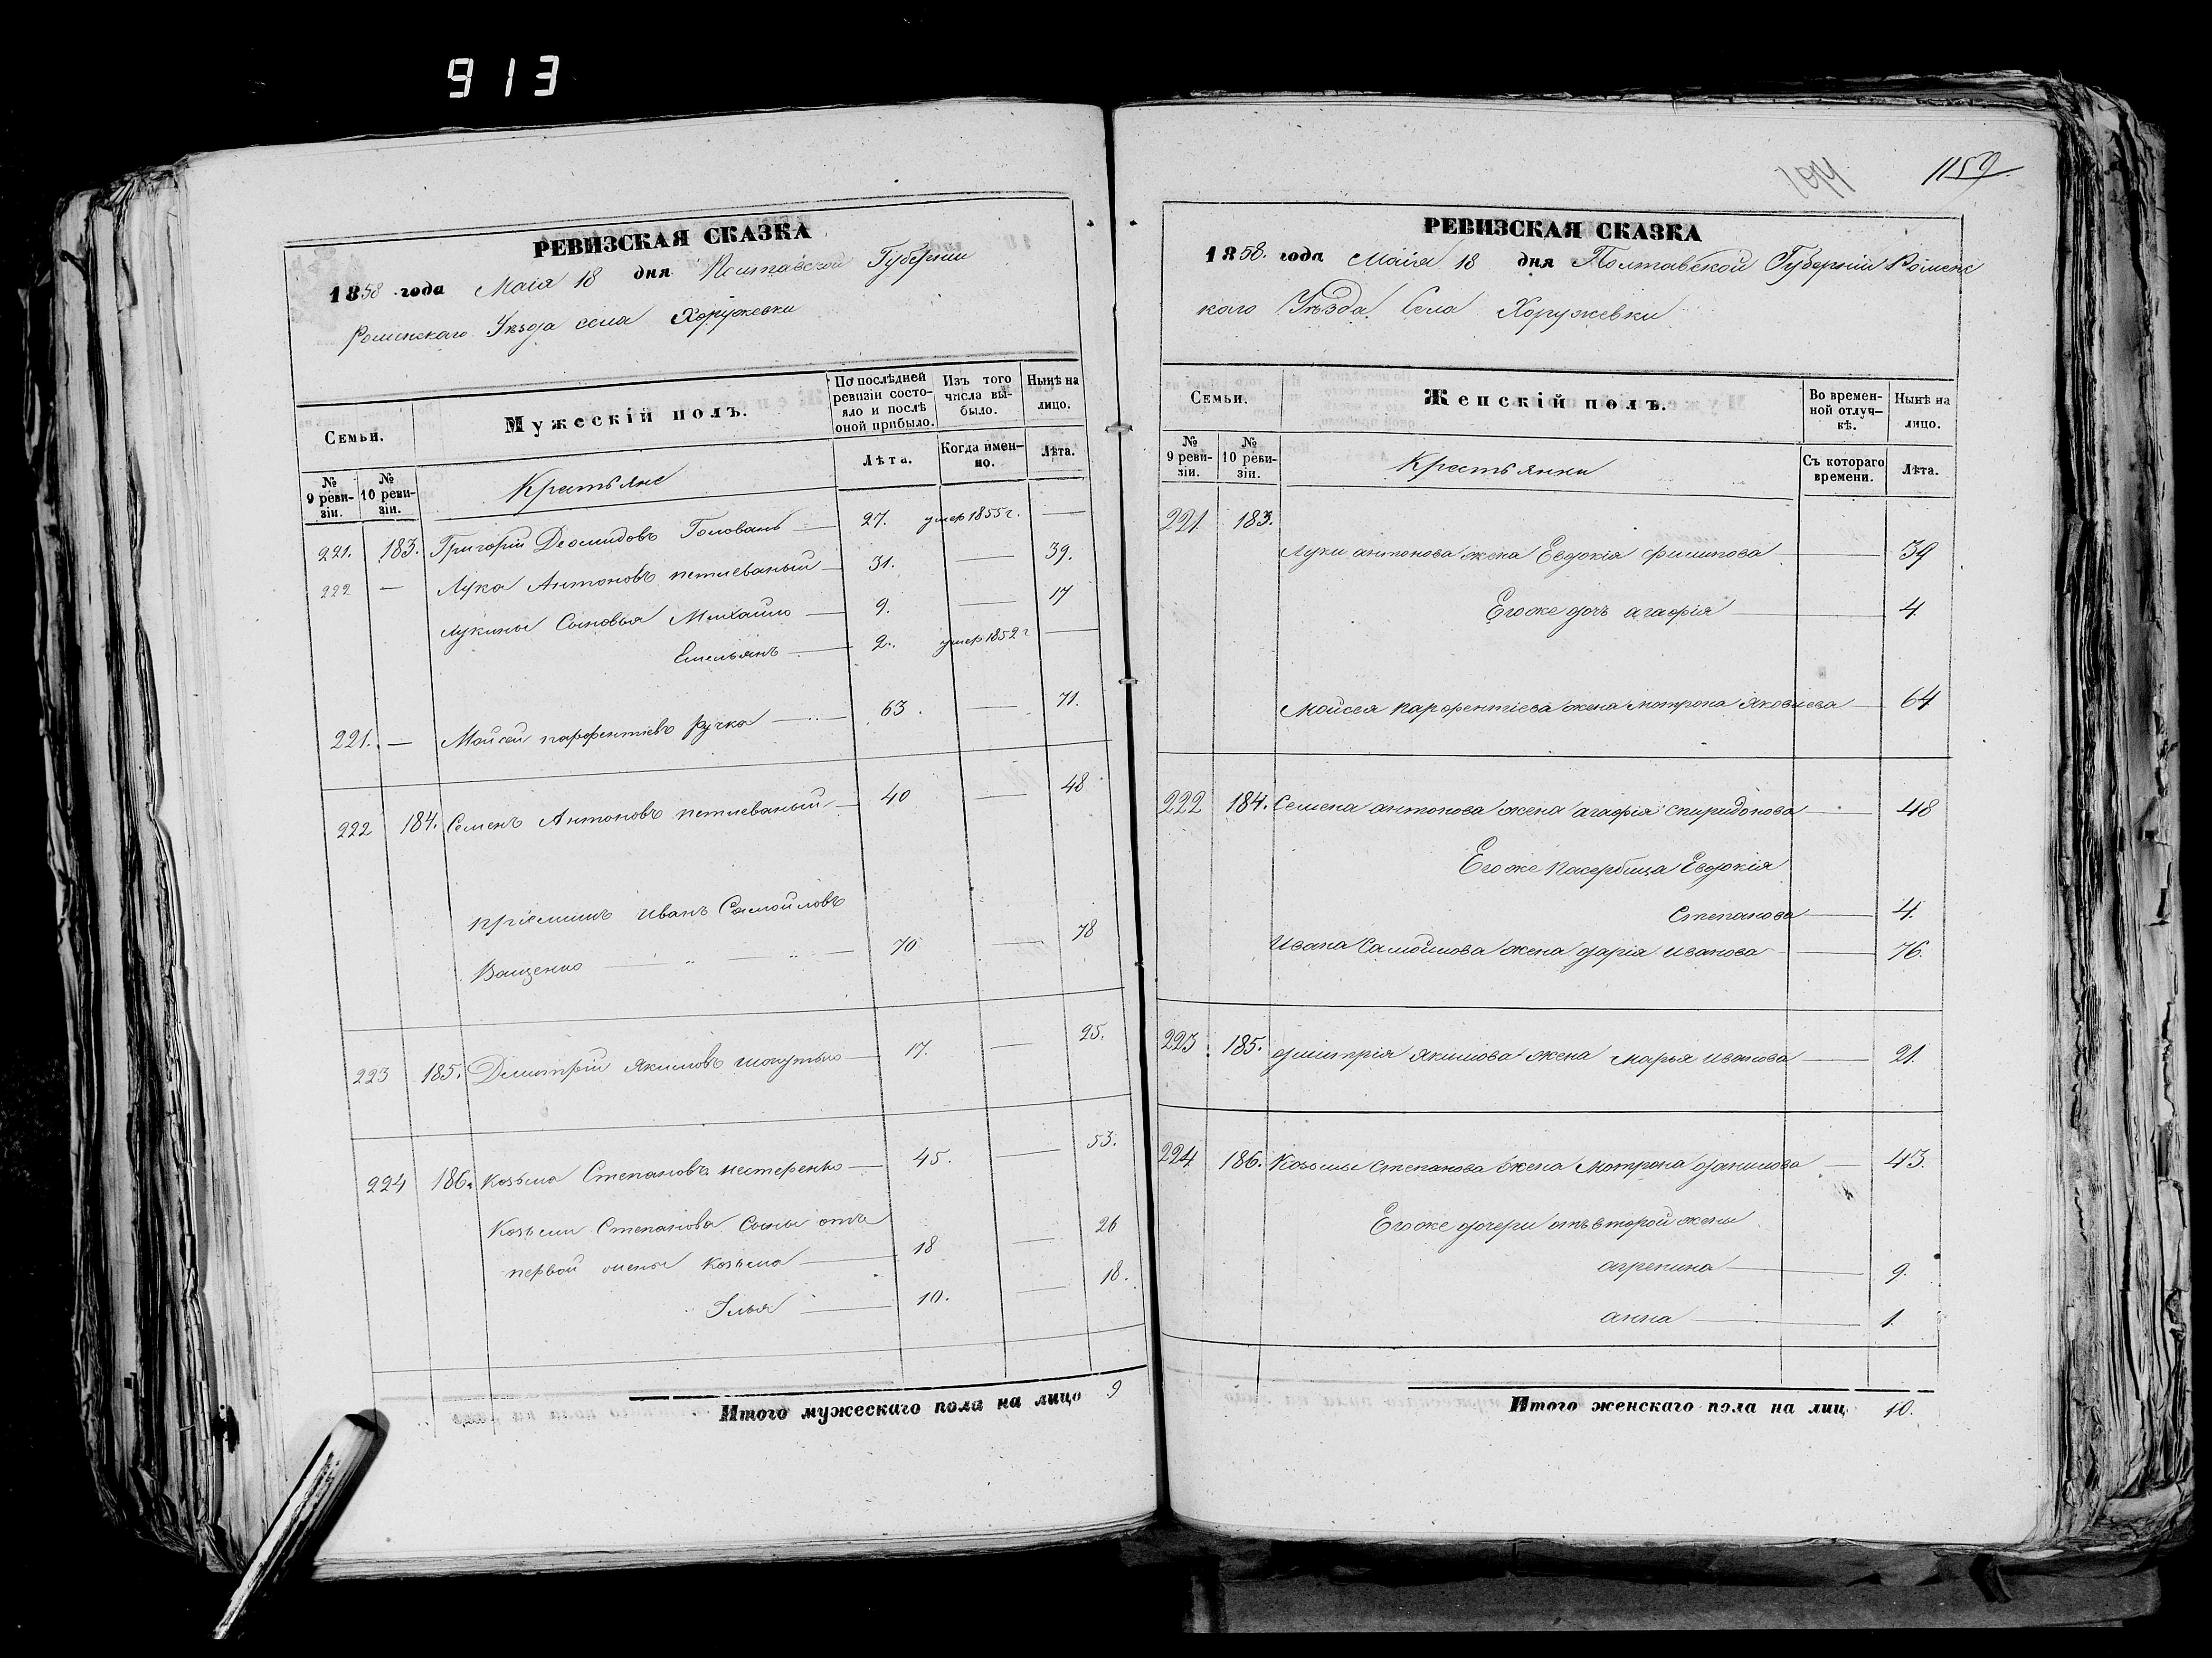 913
РЕВИЗСКАЯ СКАЗКА
1858 года Маія 18 дня Полтавской Губерніи
Роменскаго Уѣзда села Хоружевки
Семьи.
Мужескій полъ.
По послѣдней ревизіи состо-
яло и послѣ
оной прибыло.
Изъ того
числа вы-
было.
Нынѣ на
лицо.
№ 9 реви-
зіи.
№ 10 реви-
зіи.
Крестьяне
Лѣта.
Когда имен-
но.
Лѣта.
221. 183. Григорій Деомидовъ Голованъ — 27. умер 1855 г. —
222 — Лука Антоновъ петлеваный — 31. — 39.
Лукины Сыновья Михайло — 9. — 17
Емельянъ — 2. умер 1852 г —
221. — Мойсей парфентіевъ Ручка — 63. — 71.
222 184. Семенъ Антоновъ петлеваный — 40 — 48
пріемышъ Иванъ Самойловъ
Ващенко — „ — „ — 70 — 78
223 185. Дмитрій Якимовъ — 17. — 25.
224 186. Козьма Степановъ нестеренко — 45. — 53.
Козьмы Степанова Сыны отъ
первой жены Козьма — 18 — 26
Илья — 10. — 18.
Итого мужескаго пола на лицо 9
1159.
РЕВИЗСКАЯ СКАЗКА
1858. года Маія 18 дня Полтавской Губерніи Роменс
каго Уѣзда Села Хоружевки
Семьи.
Женскій полъ.
Во времен-
ной отлуч-
кѣ.
Нынѣ на
лицо.
№ 9 реви-
зіи.
№ 10 реви-
зіи.
Крестьянки
Съ котораго
времени.
Лѣта.
221. 183.
Луки антонова жена Евдокія филипова — 39
Егоже дочь агафія — 4
Мойсея парфентіева жена мотрона Яковлева — 64
222 184. Семена антонова жена агафія спиридонова — 48
Егоже пасербица Евдокія
Степанова — 4.
Ивана Самойлова жена дарія иванова — 76.
223. 185. дмитрія якимова жена марья иванова — 21.
224 186. Козьмы степанова жена мотрона данилова — 43.
Егоже дочери отъ второй жены
агрепина — 9.
анна — 1.
Итого женскаго пола на лиц 10.